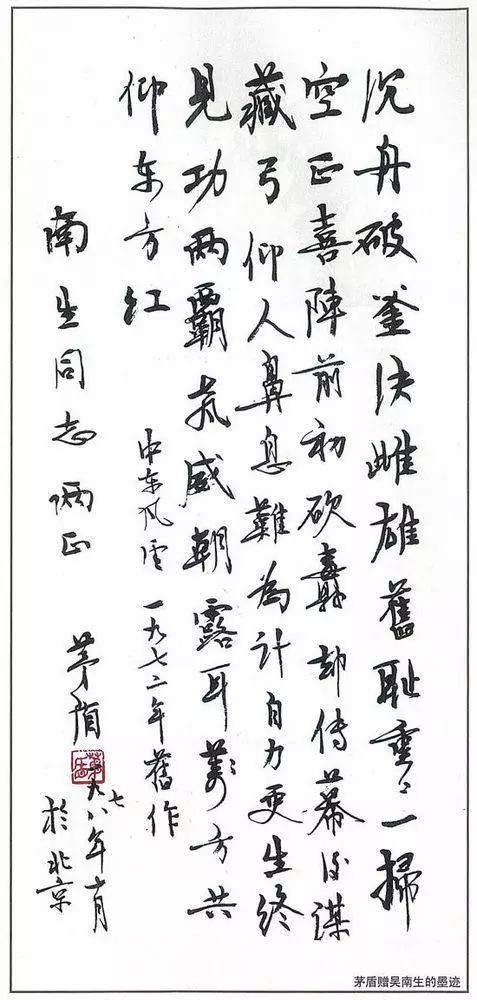 沉舟破釜决雌雄舊耻重〻一掃
空正喜陣前初砍纛却传幕後谋
藏弓仰人鼻息難為計自力更生终
見功两霸威朝露耳萬方共
仰东方红
中东风雲 一九七二年舊作
南生同志两正
茅盾
一九七八年十月
於北京
茅盾赠吴南生的墨迹